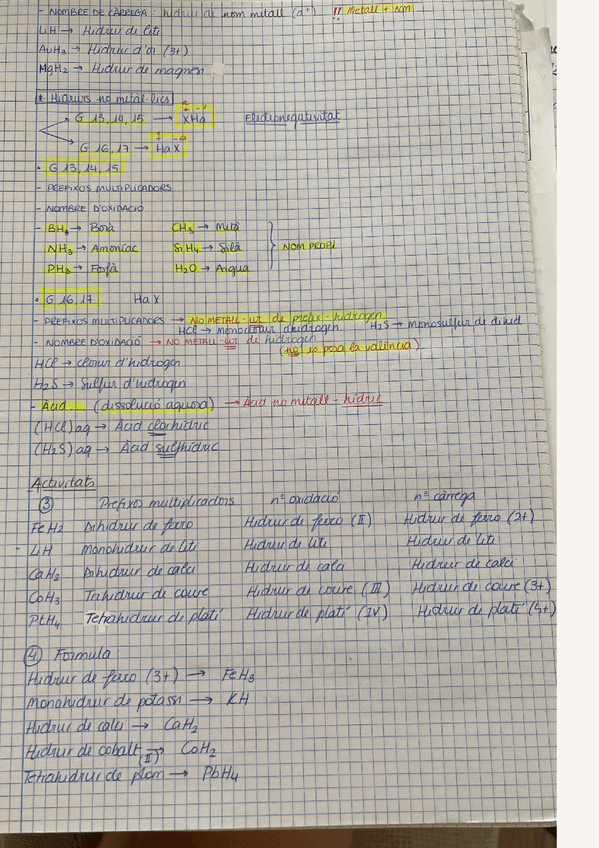 - NOMBRE DE CÀRREGA : hidrur de nom metall (a⁺) !! Metall + nm
LiH → Hidrur de liti
AuH₃ → Hidrur d'or (3+)
MgH₂ → Hidrur de magnesi
* Hidrurs no metàl·lics
G 13, 14, 15 → XHa Electronegativitat
G 16, 17 → HaX
• G 13, 14, 15
- PREFIXOS MULTIPLICADORS
- NOMBRE D'OXIDACIÓ
- BH₃ → Borà CH₄ → Metà
NH₃ → Amoníac SiH₄ → Silà } NOM PROPI
PH₃ → Fosfà H₂O → Aigua
• G 16, 17 HaX
- PREFIXOS MULTIPLICADORS → NO METALL-ur de prefix-hidrogen
HCl → monoclorur d'hidrogen. H₂S → monosulfur de dihid
- NOMBRE D'OXIDACIÓ → NO METALL-ur de hidrogen
(no es posa la valència)
HCl → clorur d'hidrogen
H₂S → Sulfur d'hidrogen
- Àcid.... (dissolució aquosa) → Àcid no metall - hídric
(HCl)aq → Àcid clorhídric
(H₂S)aq → Àcid sulfhídric
Activitats
③ Prefixos multiplicadors nº oxidació nº càrrega
FeH₂ Dihidrur de ferro Hidrur de ferro (II) Hidrur de ferro (2+)
- LiH Monohidrur de liti Hidrur de liti Hidrur de liti
CaH₂ Dihidrur de calci Hidrur de calci Hidrur de calci
CoH₃ Trihidrur de coure Hidrur de coure (III) Hidrur de coure (3+)
PtH₄ Tetrahidrur de platí Hidrur de platí (IV) Hidrur de platí (4+)
④ Formula:
Hidrur de ferro (3+) → FeH₃
Monohidrur de potassi → KH
Hidrur de calci → CaH₂
Hidrur de cobalt (II) → CoH₂
Tetrahidrur de plom → PbH₄